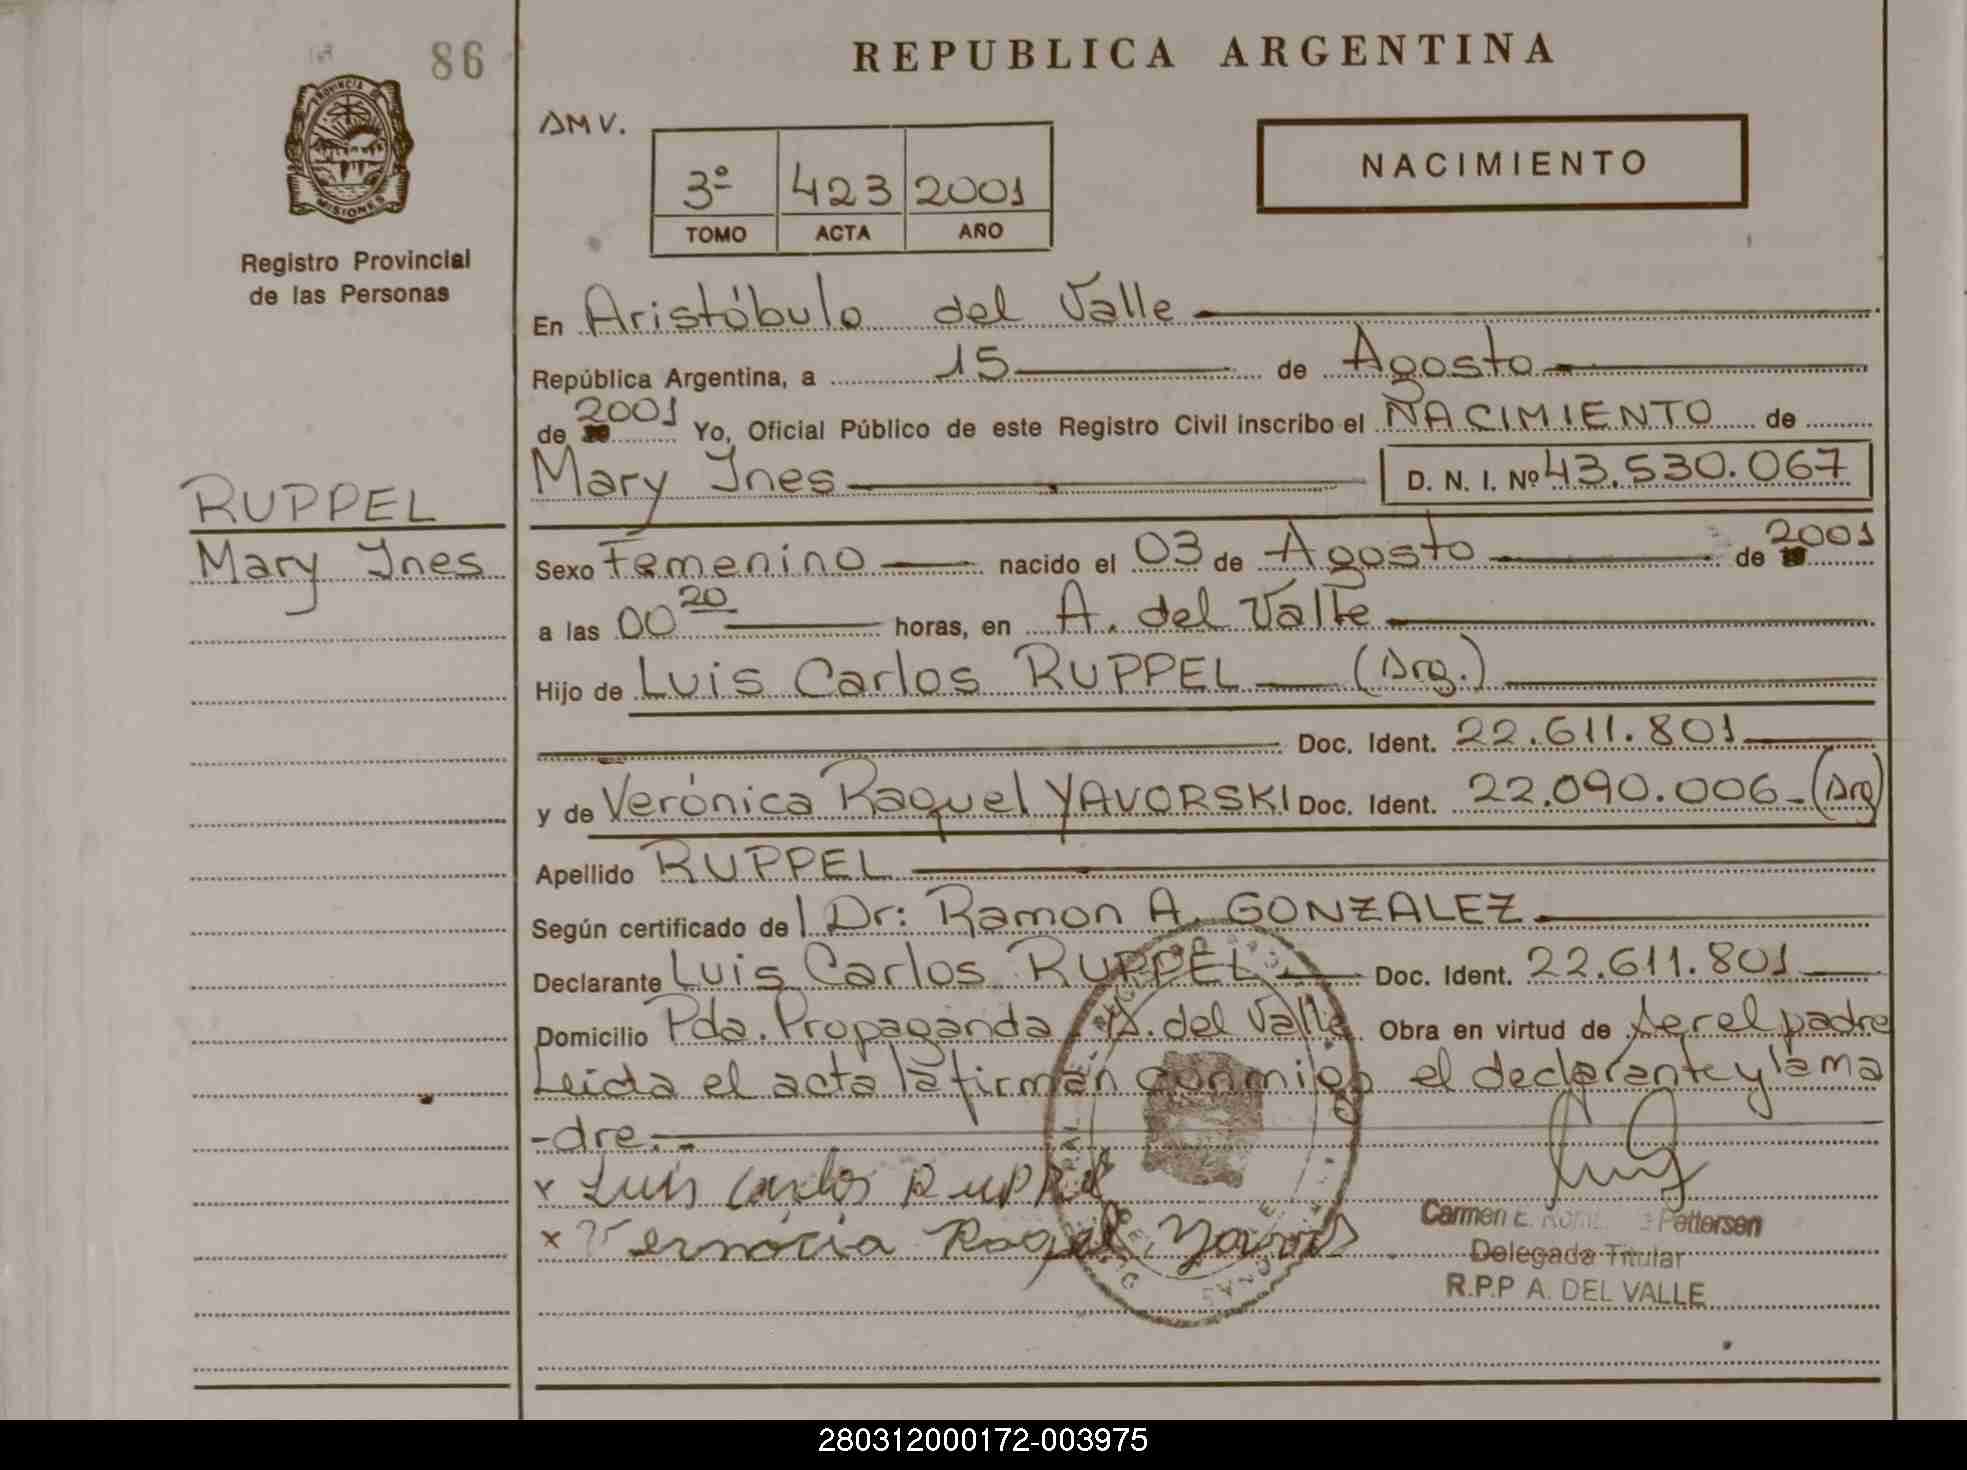 86
REPUBLICA ARGENTINA
PROVINCIA DE
MISIONES
Registro Provincial
de las Personas
AMV.
3º 423 2001
TOMO ACTA AÑO
NACIMIENTO
En Aristóbulo del Valle
República Argentina, a 15 de Agosto
de 2001 Yo, Oficial Público de este Registro Civil inscribo el NACIMIENTO de
Mary Ines D. N. I. Nº 43.530.067
RUPPEL
Mary Ines
Sexo Femenino nacido el 03 de Agosto de 2001
a las 00 20 horas, en A. del Valle
Hijo de Luis Carlos RUPPEL (Arg.)
Doc. Ident. 22.611.801
y de Verónica Raquel YAVORSKI Doc. Ident. 22.090.006 - (Arg)
Apellido RUPPEL
Según certificado del Dr: Ramon A. GONZALEZ
Declarante Luis Carlos RUPPEL Doc. Ident. 22.611.801
Domicilio Pda. Propaganda A. del Valle Obra en virtud de ser el padre
Leida el acta la firman conmigo el declarante y la ma
-dre.-
x Luis Carlos Ruppel
x Raquel
Carmen E. Pettersen
Delegada Titular
R.P.P A. DEL VALLE
280312000172-003975